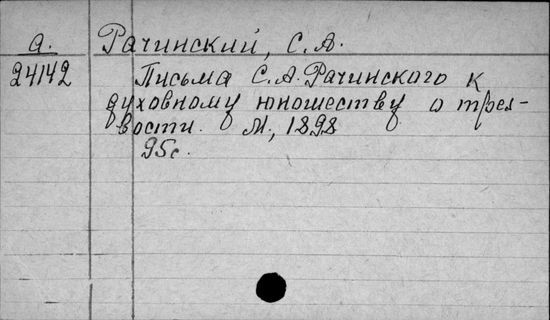 а. Рачинский, С.А.
24142 Письма С.А. Рачинского к
духовному юношеству о трез-
вости. М., 1898
95с.